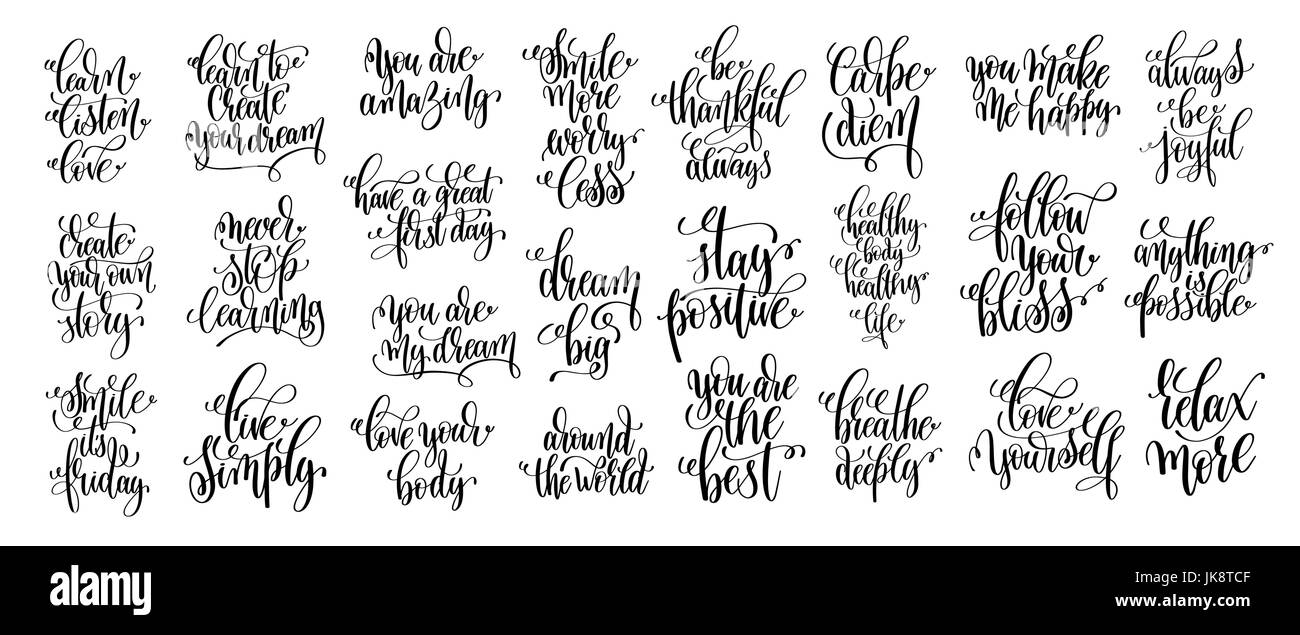 learn
listen
love
learn to
create
your dream
you are
amazing
smile
more
worry
less
be
thankful
always
Carpe
diem
you make
me happy
always
be
joyful
have a great
first day
create
your own
story
never
stop
learning
dream
big
stay
positive
healthy
body
healthy
life
follow
your
bliss
anything
is
possible
you are
my dream
smile
it's
friday
live
simply
love your
body
around
the world
you are
the
best
breathe
deeply
love
yourself
relax
more
alamy
alamy stock photo
JK8TCF
www.alamy.com